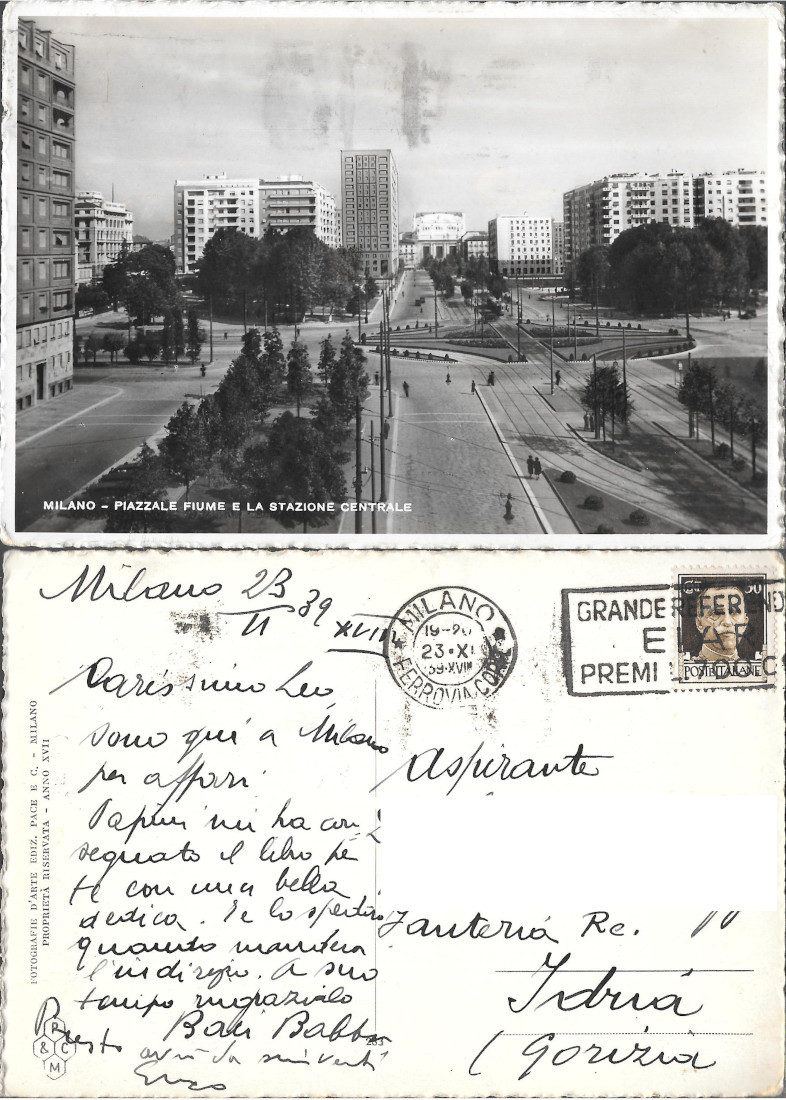 MILANO - PIAZZALE FIUME E LA STAZIONE CENTRALE
Milano 23
11 39
XVIII
MILANO
19-20
23·XI
39·XVIII
FERROVIA CORR
GRANDE REFEREND
EIAR
PREMI
50
POSTE ITALIANE
Carissimo Leo
sono qui a Milano
per affari
Papini mi ha con
segnato il libro pe
te con una bella
dedica. Te lo spedirò
quanto manderai
l'indirizzo. A suo
tempo ringrazialo
Presto
Baci Babbo
avrò da scriverti
Enzo
Aspirante
Fanteria Re.
Idria
(Gorizia
FOTOGRAFIE D'ARTE EDIZ. PACE E C. - MILANO
PROPRIETÀ RISERVATA - ANNO XVII
P
& C
M